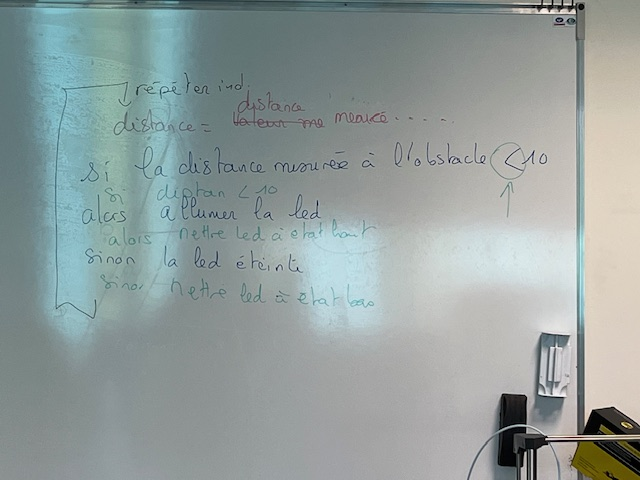 répéter ind.
distance
distance = valeur me mesuré.....
si la distance mesurée à l'obstacle < 10
si distan < 10
alors allumer la led
alors mettre led à etat haut
sinon la led éteinte
sinon mettre led à etat bas